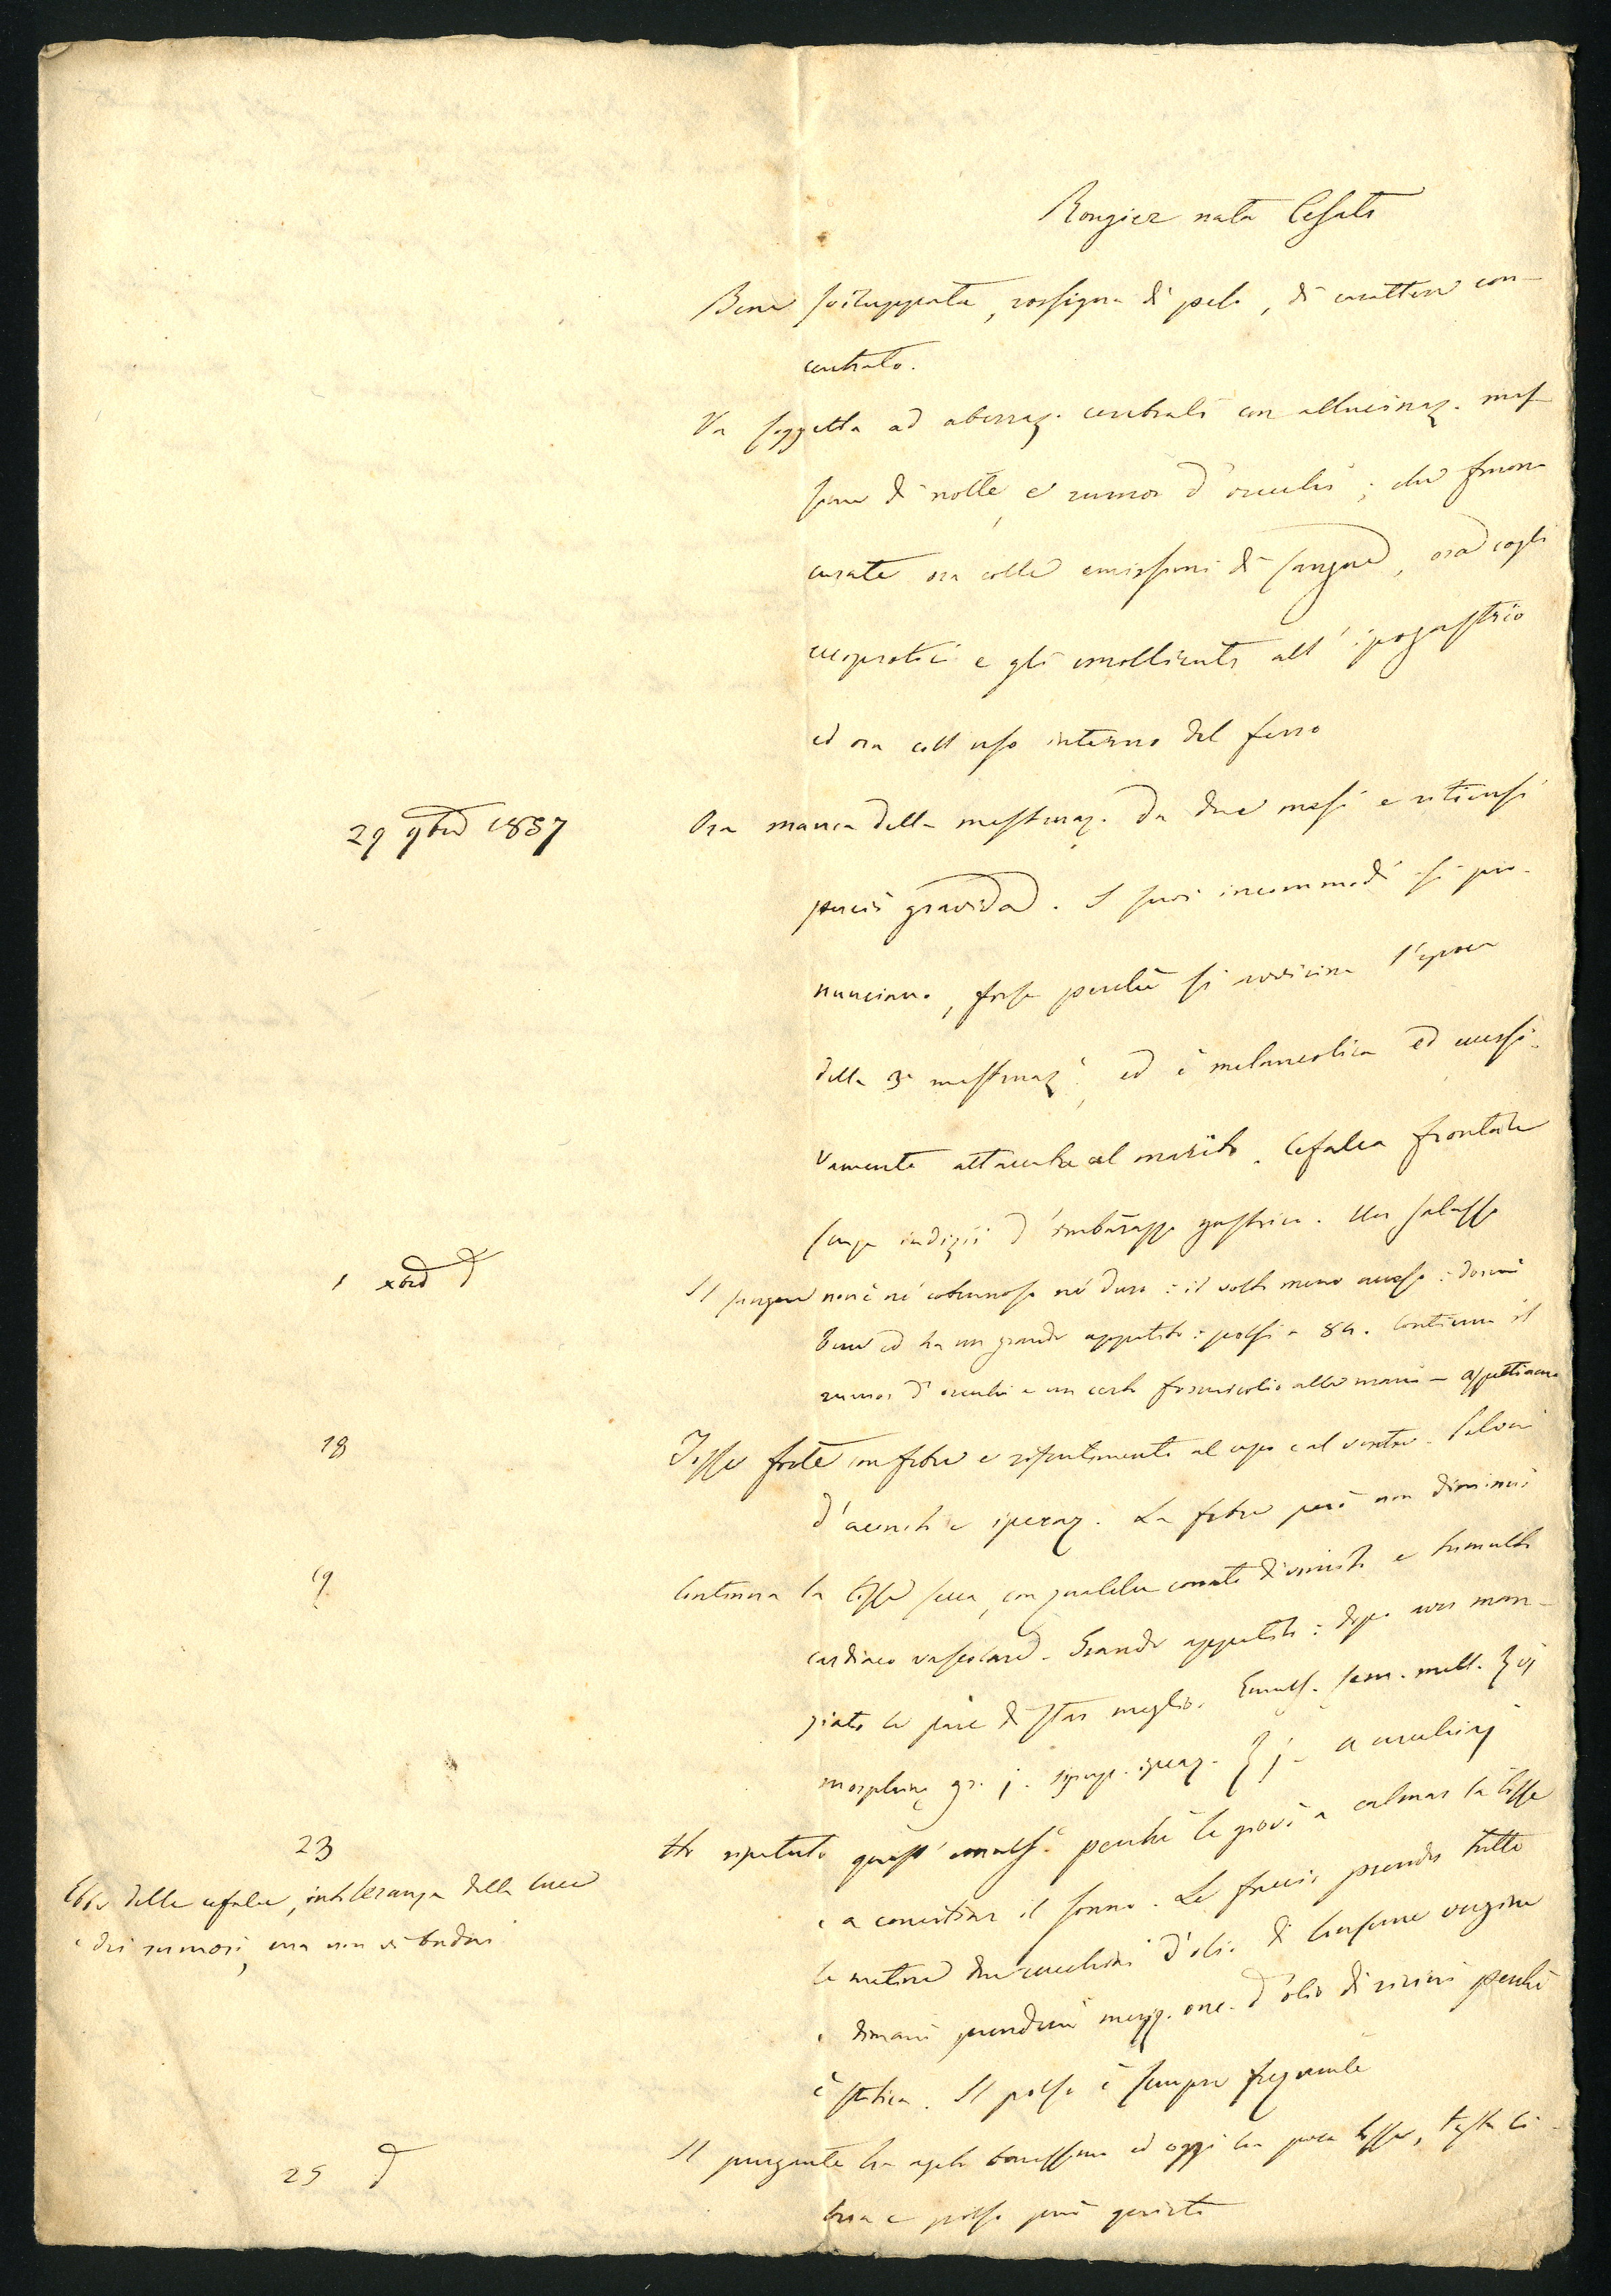 Rougier nata Cesati
Bene sviluppata, rossigna di pelo, di carattere con-
centrato.
Va soggetta ad aberraz. cerebrali con allucinaz. mas
sime di notte, e rumor d'orecchi; che furon
curate ora colle emissioni di sangue, ora cogli
eccoprotici e gli emollienti all'ipogastrio
ed ora coll uso interno del ferro
29 9bre 1837
Ora manca della mestruaz. da due mesi e ritiensi
perciò gravida. I suoi incommodi si pro-
nunciano, forse perchè si avvicina l'epoca
della 3a mestruaz.e, ed è melancolica ed eccessi-
vamente attaccata al marito. Cefalea frontale
senza indizii d'imbarazzo gastrico. Un salasso
1 xbre d
Il sangue non è nè cotennoso nè duro: il volto meno acceso: dormì
bene ed ha un grande appetito: polsi a 84. Continua il
rumor d'orecchi e un certo formicolio alle mani - aspettiamo
18
Tosse forte con febre e risentimento al capo e al ventre. Polveri
d'aconito e ipecaq. La febre però non diminuì
19
Continua la tosse secca, con qualche conato di vomito e tumulto
cardiaco vascolare. Grande appetito: dopo aver man-
giato le pare di star meglio. Emuls. sem. mell. ℥vj
morphinę gr. j. syrup. ipecaq. ℥j - a cucchiaj
23
Ebbe della cefalea, intolleranza della luce
e dei rumori, ma non vi badai
Ho ripetuto quest'emuls.e perchè le giovò a calmar la tosse
e a conciliar il sonno. Le faccio prender tutte
le mattine due cucchiai d'olio di
e dimani prenderà mezz. onc. d'olio di ricini perchè
è stitica. Il polso è sempre frequente
25 d
Il purgante ha agito benissimo ed oggi ha poca tosse, testa li-
bera e polso più quieto